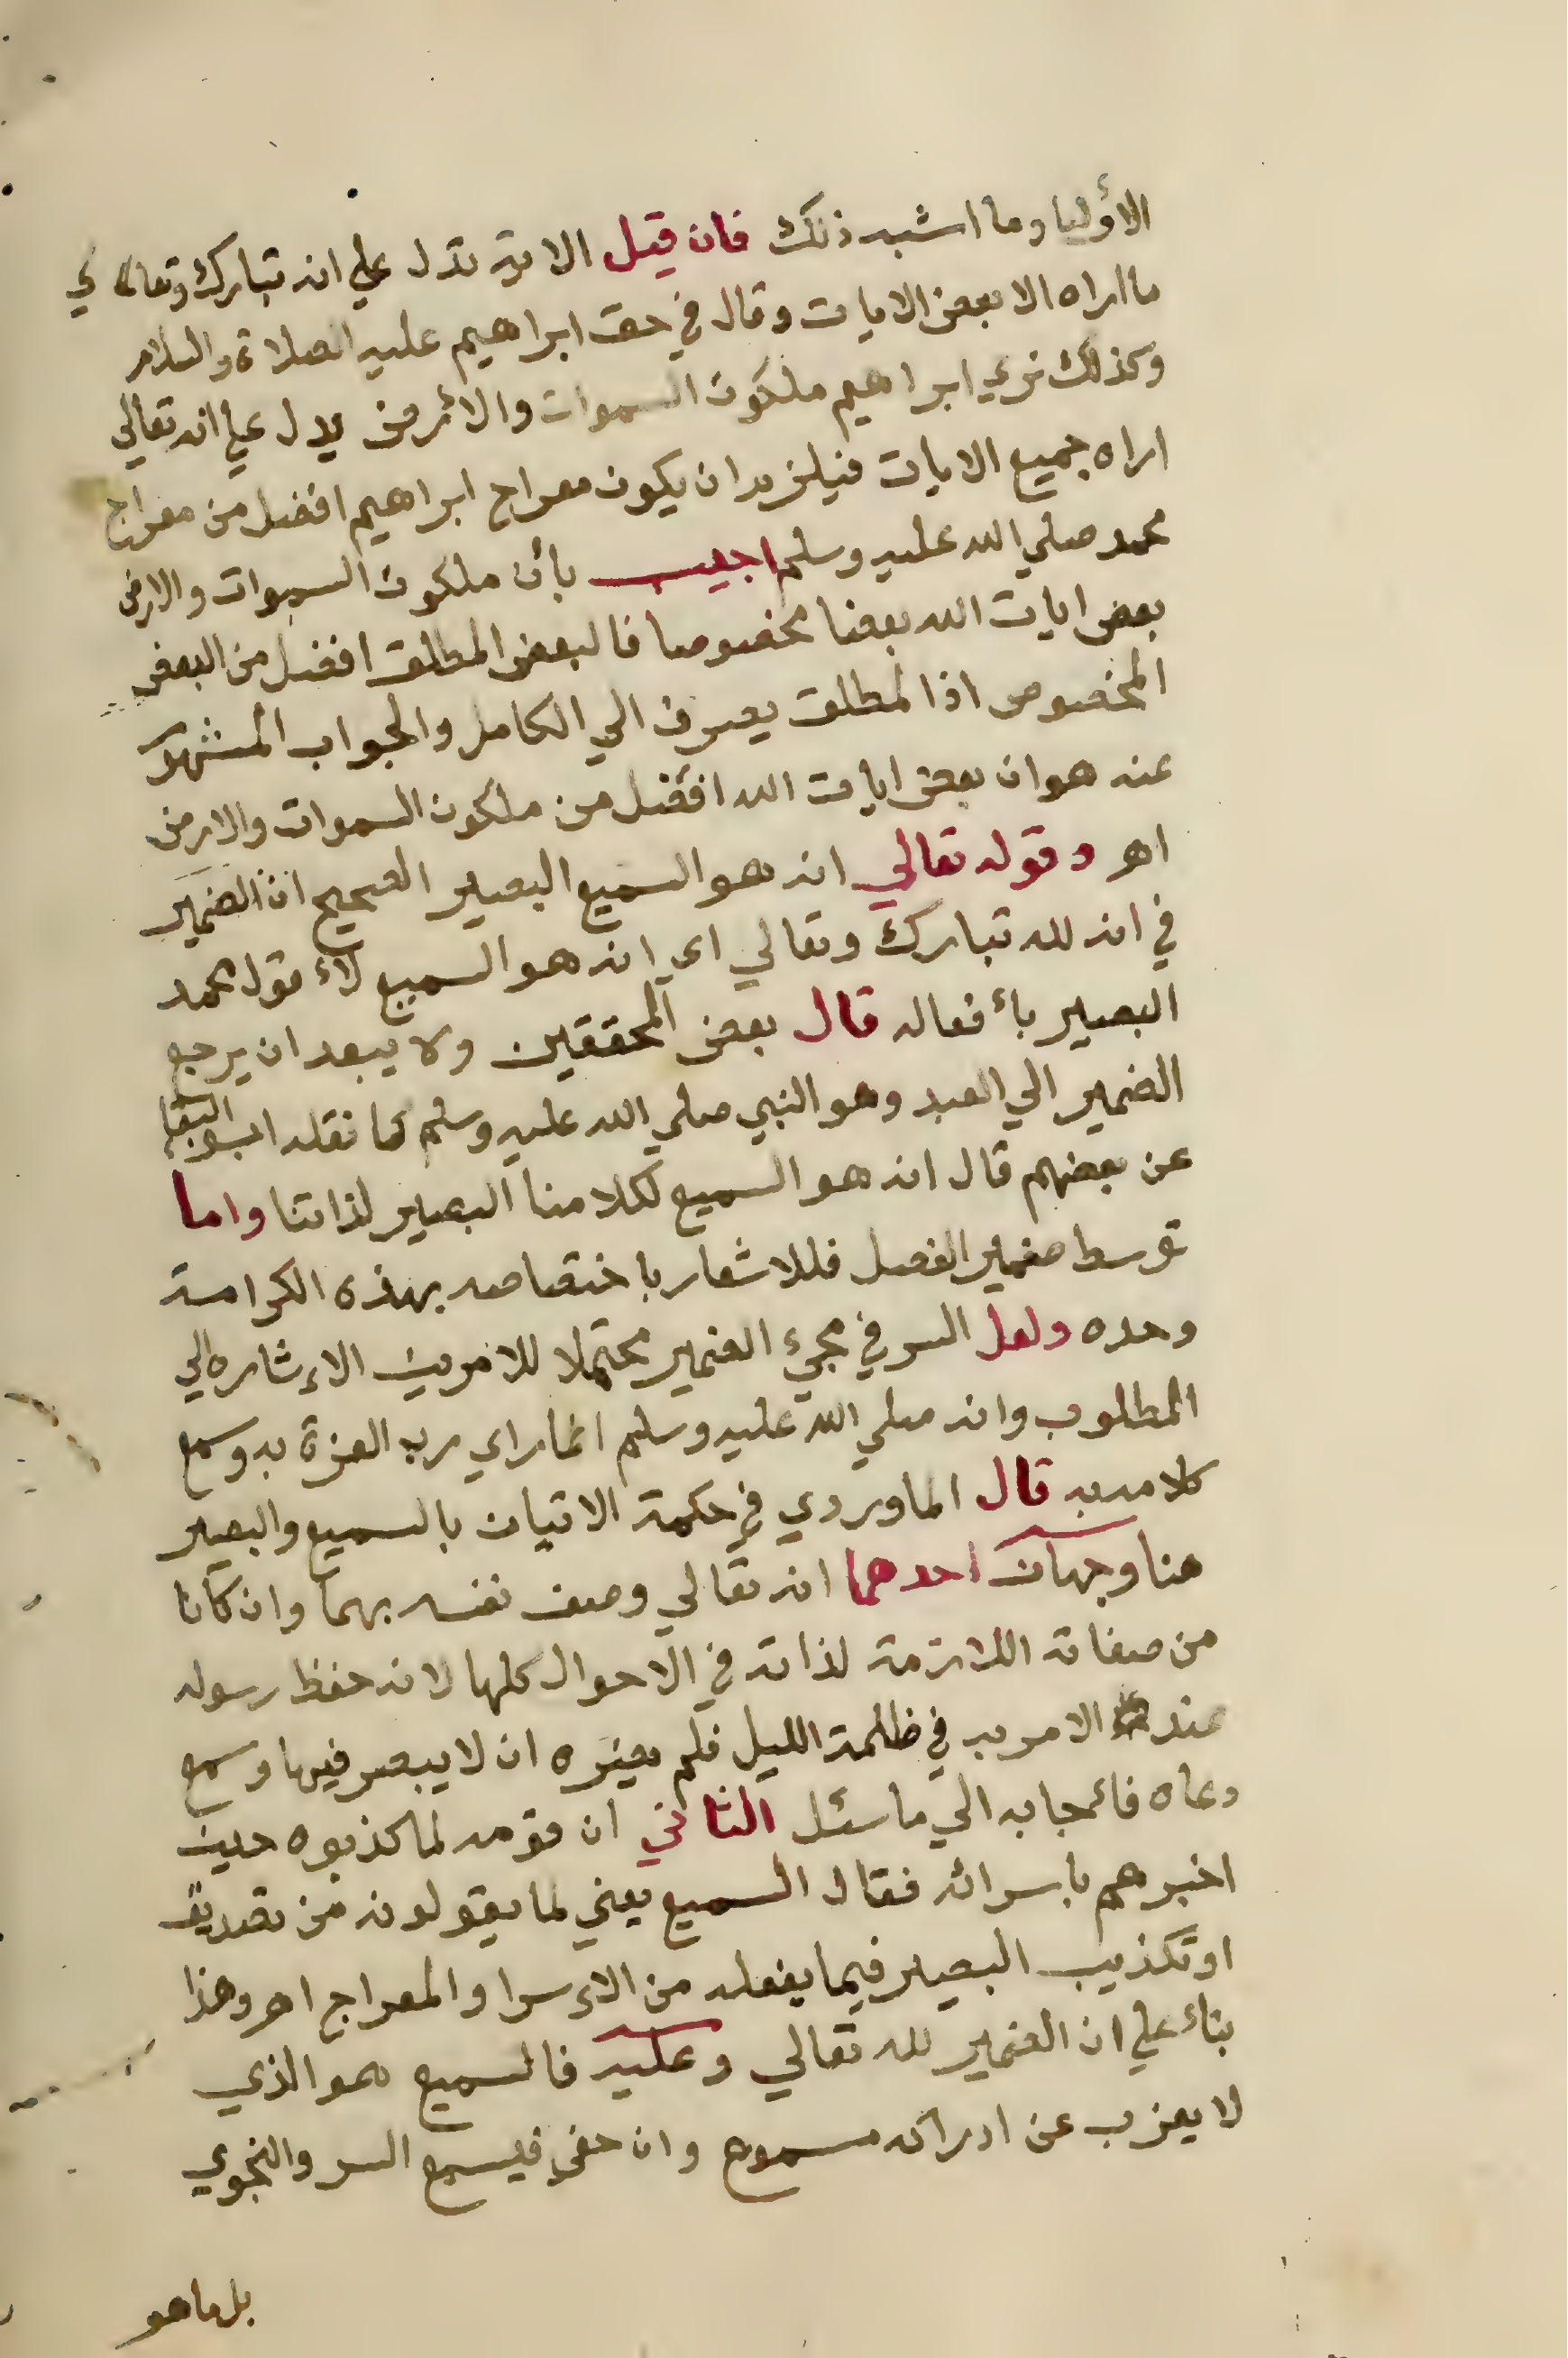 الأوليا وما اشبه ذلك فان قيل الاية تدل علي انه تبارك وتعالي
ما اراه الا بعض الايات وقال في حق ابراهيم عليه الصلاة والسلام
وكذلك نري ابراهيم ملكوت السموات والأرض يدل علي انه تعالي
اراه جميع الايات فيلزم ان يكون معراج ابراهيم افضل من معراج
محمد صلي الله عليه وسلم اجيب بأن ملكوت السموات والارض
بعض ايات الله بعضا مخصوصا فالبعض المطلق افضل من البعض
المخصوص اذا لمطلق يصرف الي الكامل والجواب المشهور
عنه هو ان بعض ايات الله افضل من ملكوت السموات والارض
اهـ وقوله تعالي انه هو السميع البصير الصحيح ان الضمير
في انه لله تبارك وتعالي اي انه هو السميع لأقول محمد
البصير بأفعاله قال بعض المحققين ولا يبعد ان يرجع
الضمير الي العبد وهو النبي صلي الله عليه وسلم كما نقله ابو البقا
عن بعضهم قال انه هو السميع لكلامنا البصير لذاتنا واما
توسط ضمير الفصل فللاشعار باختصاصه بهذه الكرامة
وحده ولعل السر في مجيء الضمير محتملا للامرين الإشاره الي
المطلوب وانه صلي الله عليه وسلم انما راي رب العزة به وسمع
كلامه به قال الماوردي في حكمة الاتيان بالسميع والبصير
هنا وجهان احدهما انه تعالي وصف نفسه بهما وان كانا
من صفاته اللازمة لذاته في الاحوال كلها لانه حفظ رسوله
عند الامر به في ظلمة الليل فلم يضره ان لا يبصر فيها وسمع
دعاه فأجابه الي ما سئل الثاني ان قومه لما كذبوه حين
اخبرهم باسرائه فقال السميع يعني لما يقولونه من تصديق
او تكذيب البصير فيما يفعله من الإسرا والمعراج اهـ وهذا
بناء علي ان الضمير لله تعالي وعليه فالسميع هو الذي
لا يعزب عن ادراكه مسموع وان خفي فيسمع السر والنجوي
بل ما هو